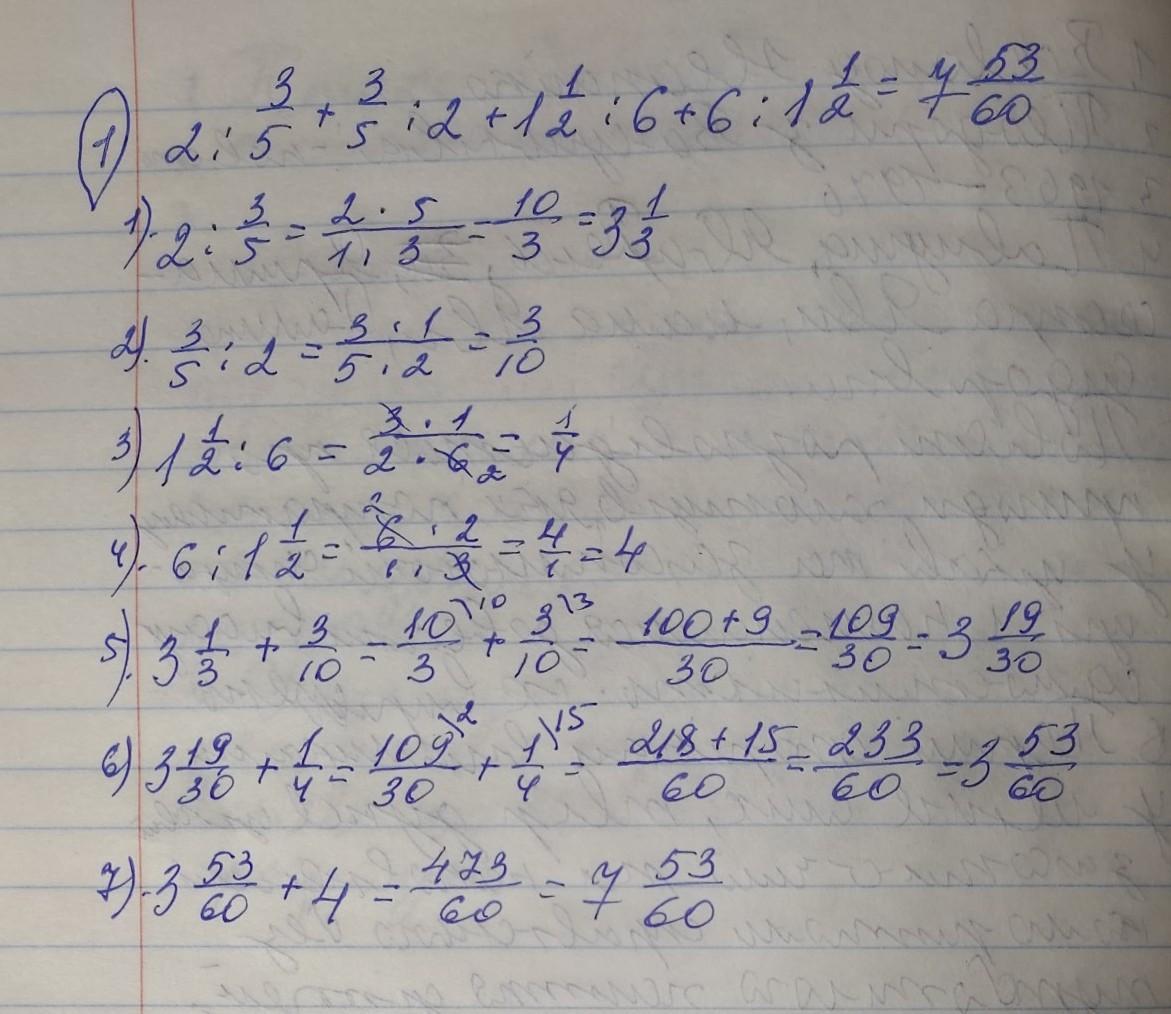 1) 2 : 3/5 + 3/5 : 2 + 1 1/2 : 6 + 6 : 1 1/2 = 7 53/60
1). 2 : 3/5 = 2 · 5/1 · 3 = 10/3 = 3 1/3
2). 3/5 : 2 = 3 · 1/5 · 2 = 3/10
3) 1 1/2 : 6 = 3 · 1/2 · 6 2 = 1/4
4). 6 : 1 1/2 = 2 6 · 2/1 · 3 = 4/1 = 4
5). 3 1/3 + 3/10 = 10\10/3 + 3\3/10 = 100+9/30 = 109/30 = 3 19/30
6) 3 19/30 + 1/4 = 109\2/30 + 1\15/4 = 218+15/60 = 233/60 = 3 53/60
7). 3 53/60 + 4 = 473/60 = 7 53/60